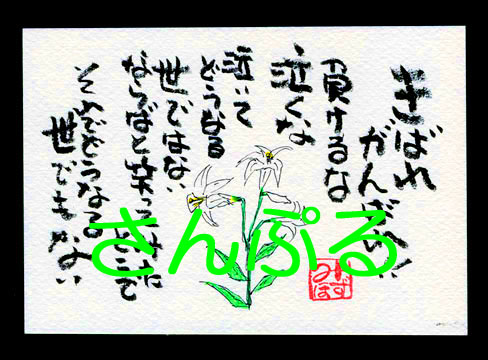 きばれ
がんばれ!
負けるな
泣くな
泣いて
どうなる
世ではない
ならばと笑って
それでどうなる
世でもない
みずほ
さんぷる